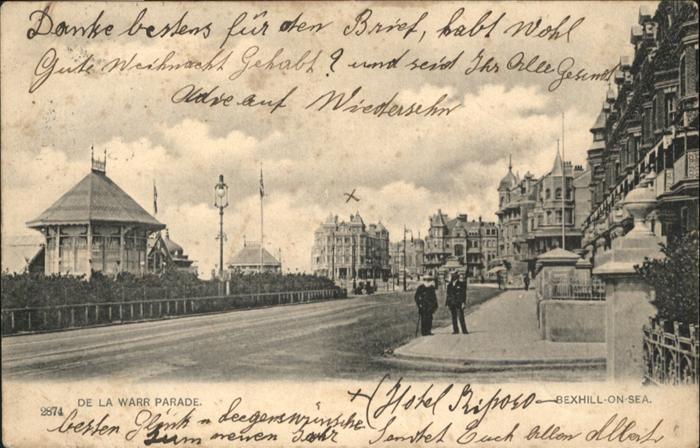 Danke bestens für den Brief, habt Wohl
Gute Weihnacht Gehabt? und seid Ihr Alle Gesund
Adie auf Wiedersehn
x
2874 DE LA WARR PARADE. BEXHILL-ON-SEA.
x (Hotel Riposo
besten Glük n Seegenswünsche
zum neuen Jahr Sendet Euch Allen Albert